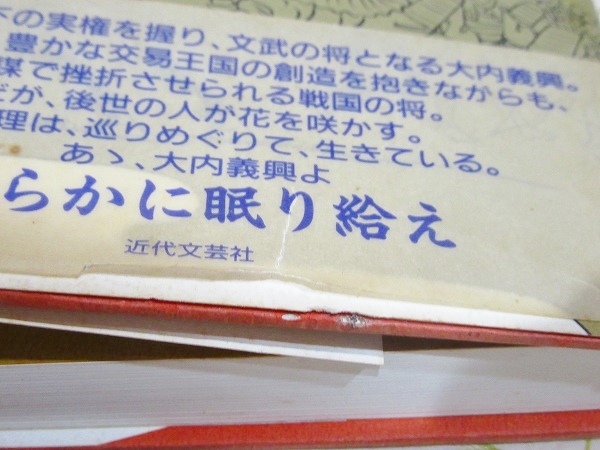 の実権を握り、文武の将となる大内義興。
豊かな交易王国の創造を抱きながらも、
謀で挫折させられる戦国の将。
だが、後世の人が花を咲かす。
理は、巡りめぐりて、生きている。
あゝ、大内義興よ
らかに眠り給え
近代文芸社